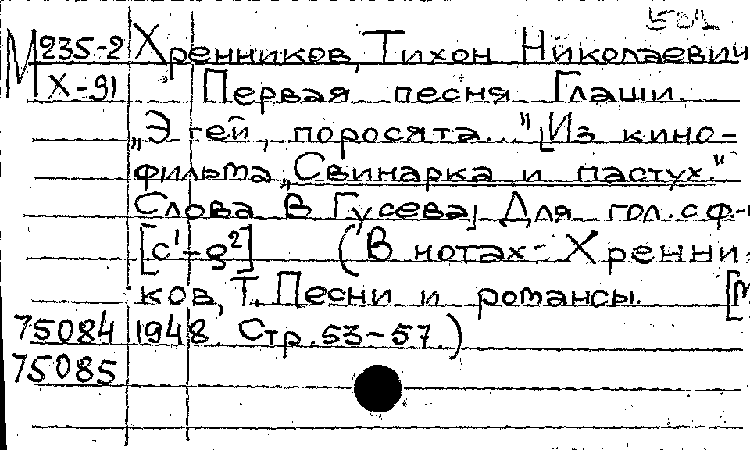 М 235-2 Хренников, Тихон Николаевич
Х-91 Первая песня Глаши.
„Э гей, поросята..." [Из кино-
фильма „Свинарка и пастух."
Слова В Гусева] Для гол. с ф-
[c¹-g²] (В нотах: Хренни-
ков, Т. Песни и романсы. [М
75084 1948. Стр. 53-57.)
75085